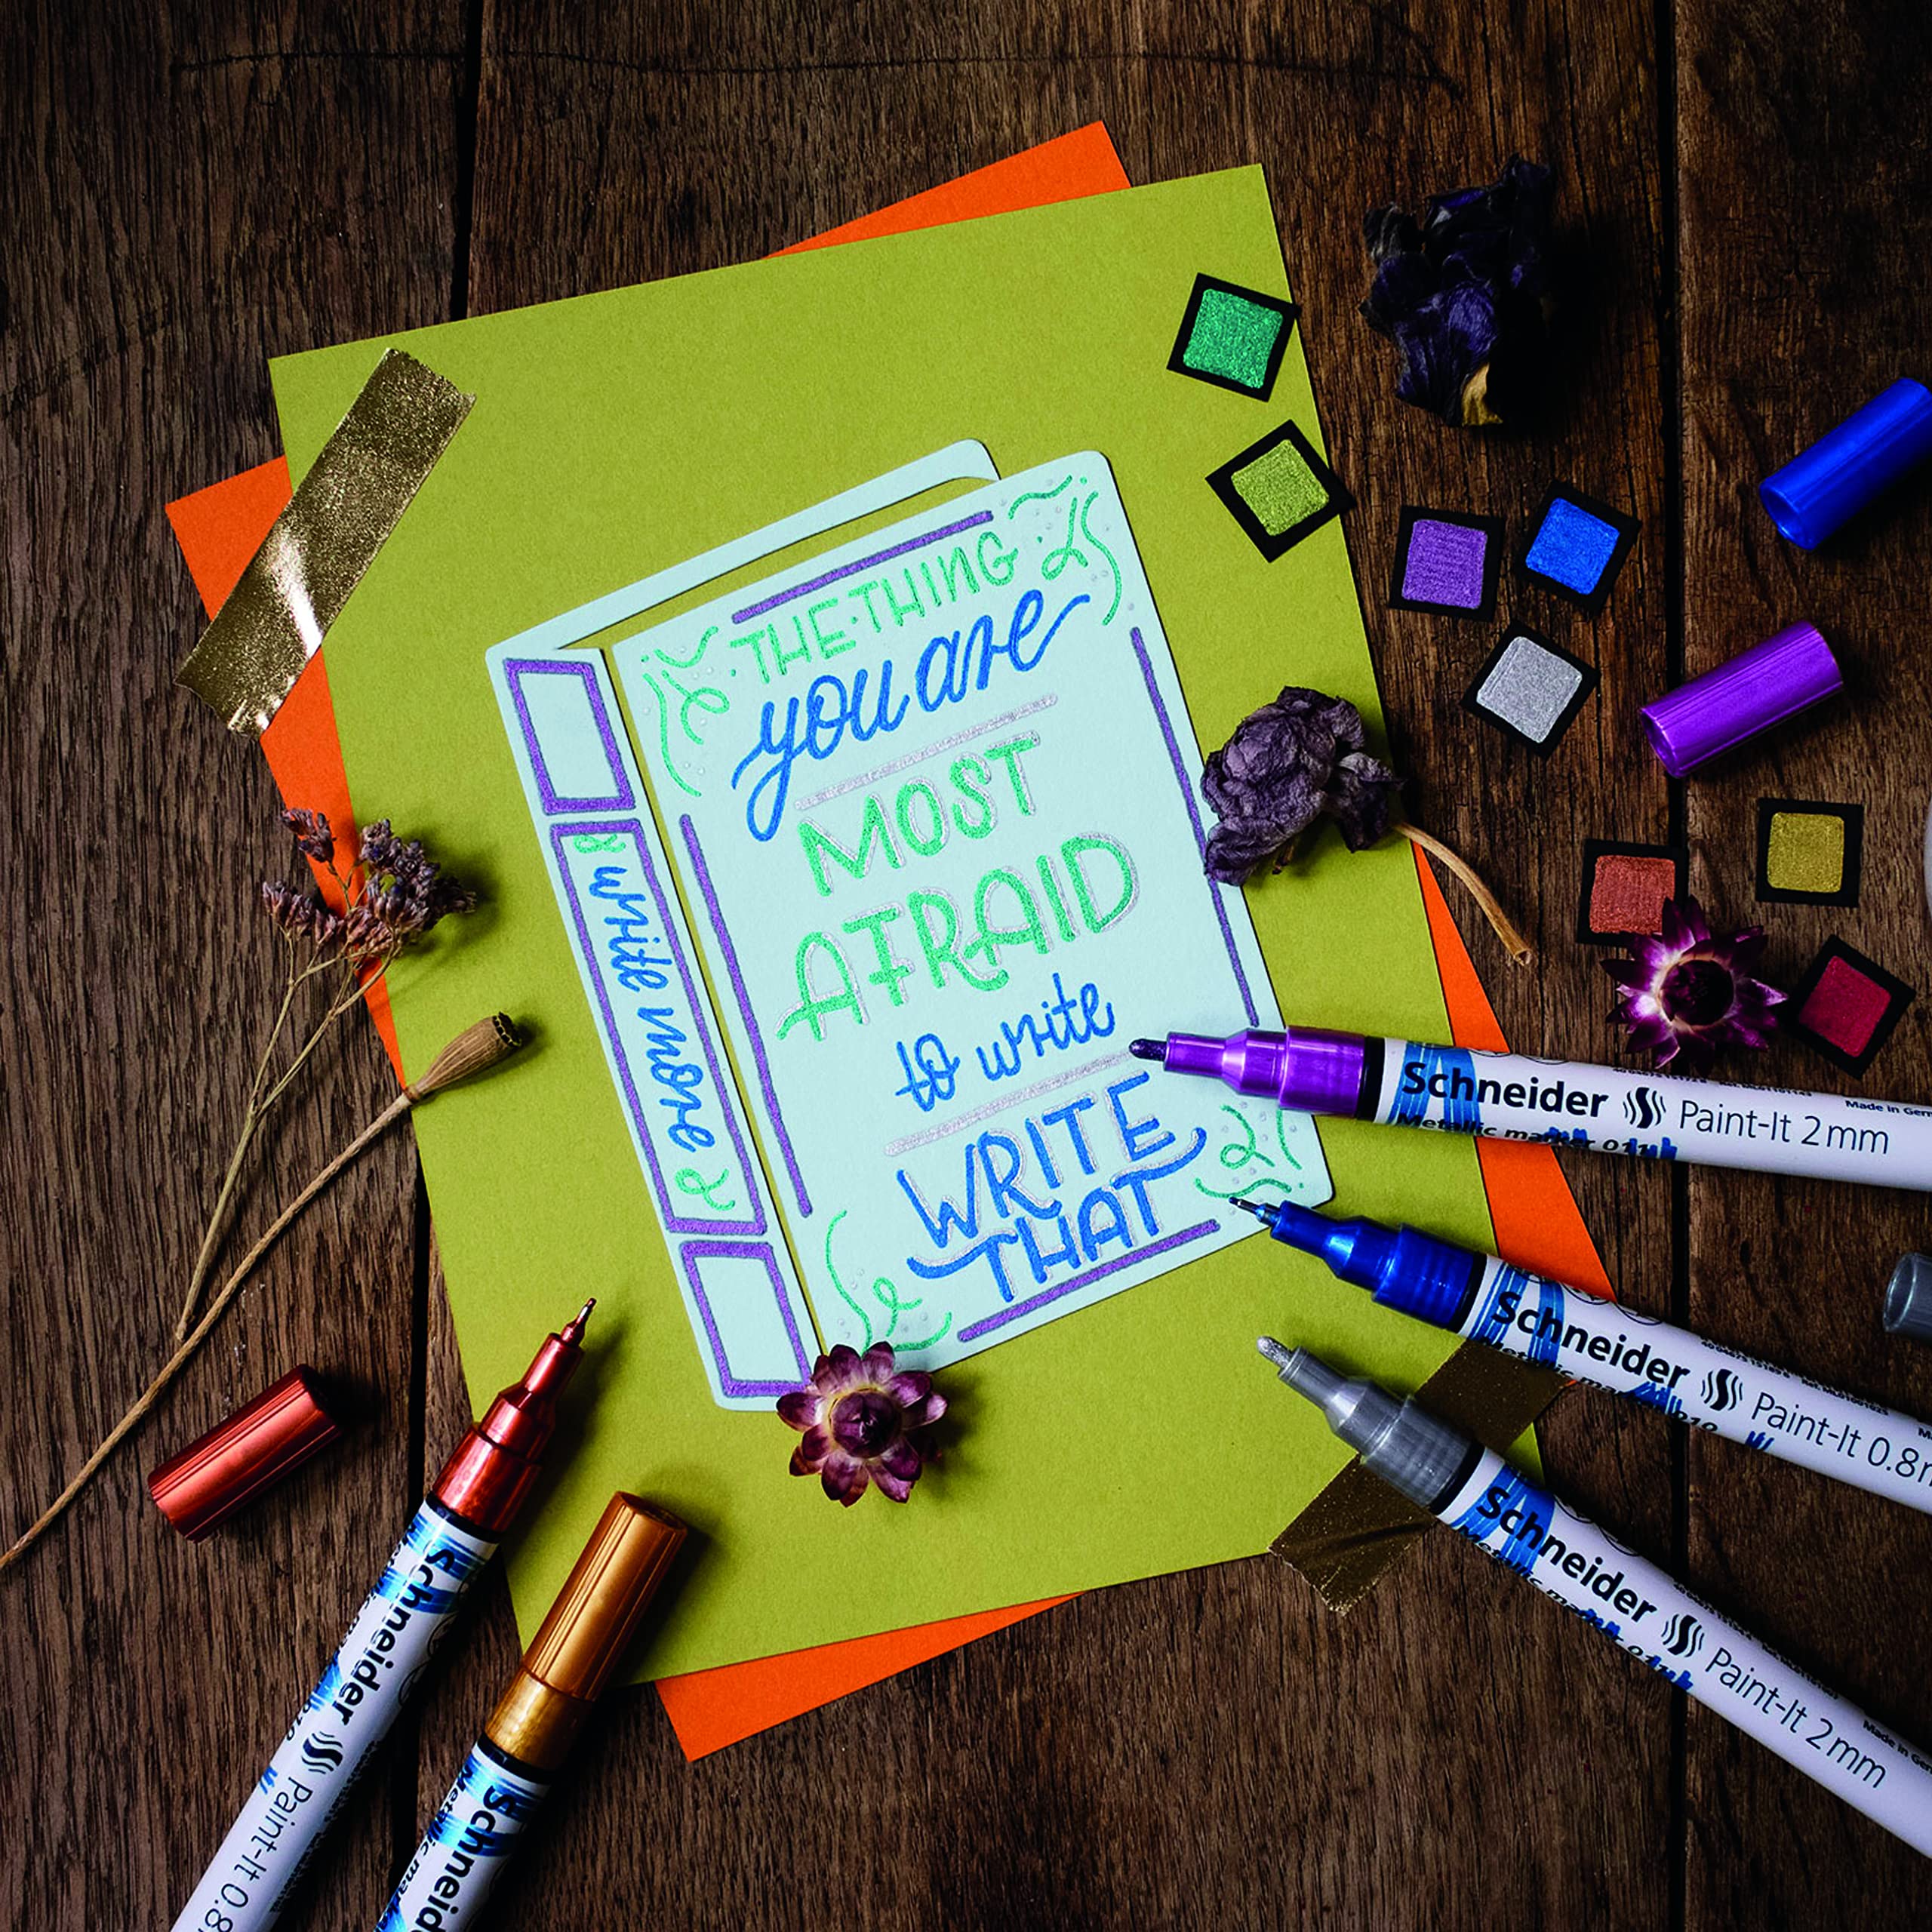 THE·THING
you are
MOST
AFRAID
to write
WRITE
THAT
write more
Schneider Paint-It 2mm
Metallic marker 011
Made in Ger
Schneider Paint-It 0.8
Schneider Paint-It 2mm
Metallic marker 011
Made in Germ
Schneider Paint-It 0.8
Schneid
Metallic ma